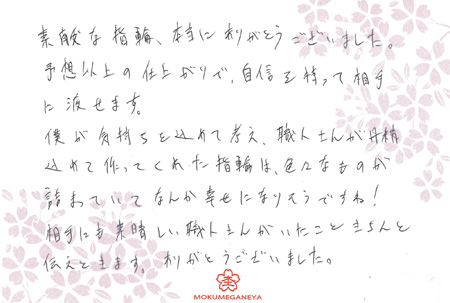 素敵な指輪、本当にありがとうございました。
予想以上の仕上がりで、自信を持って相手
に渡せます。
僕が気持ちを込めて考え、職人さんが丹精
込めて作ってくれた指輪は、色々なものが
詰まっていてなんか幸せになりそうですね!
相手にも素晴しい職人さんがいたこときちんと
伝えときます。ありがとうございました。
MOKUMEGANEYA